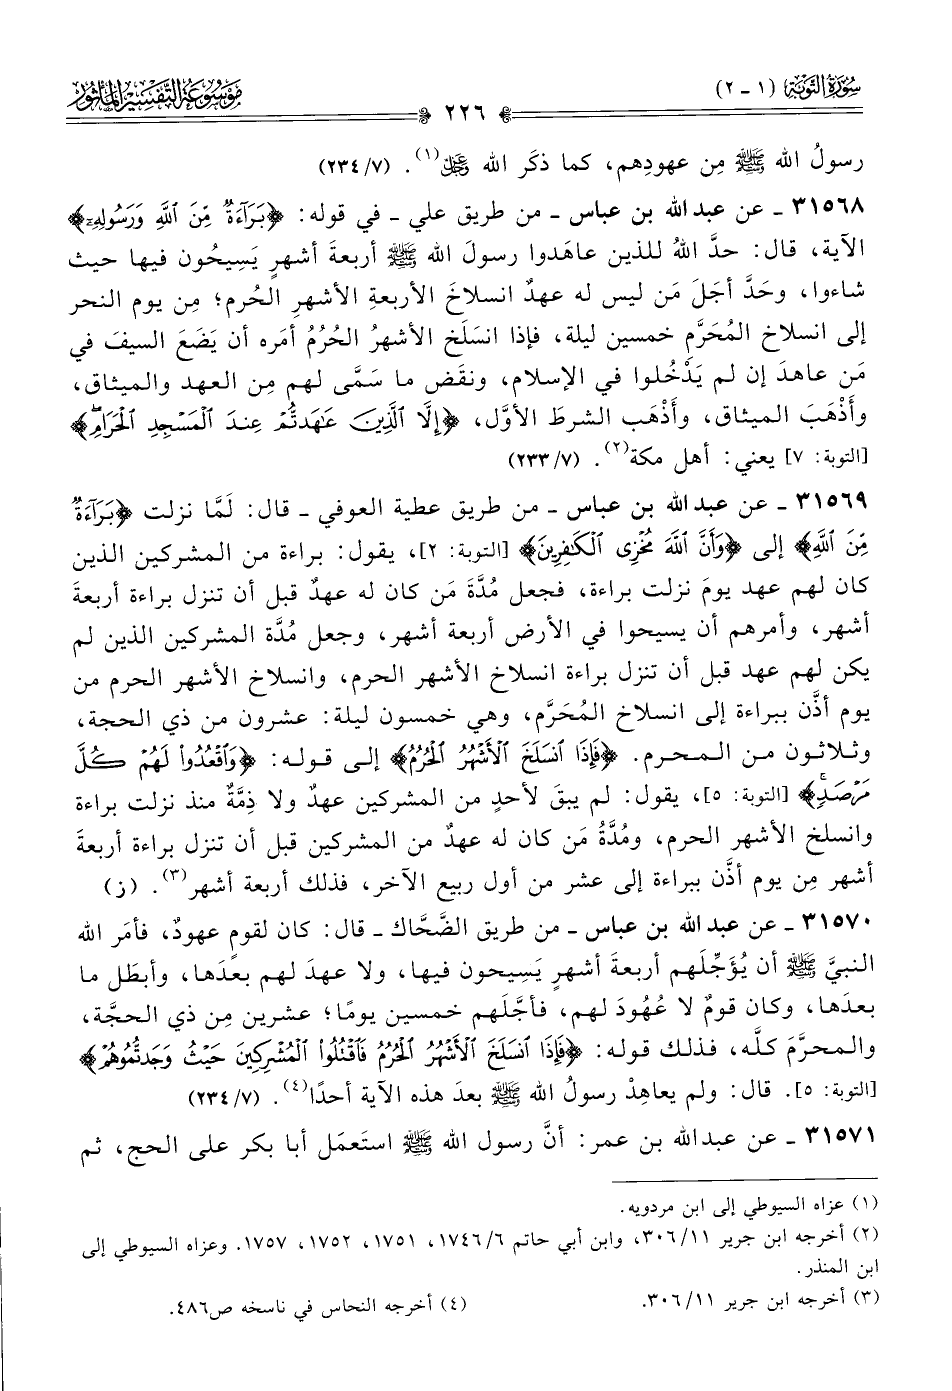 سُورَةُ التَّوْبَةِ (١ - ٢)
٢٢٦
مَوْسُوعَةُ التَّفْسِيْرِ المَأْثُورِ
رسولُ الله ﷺ مِن عهودِهم، كما ذكَر الله ﷿(١). (٢٣٤/٧)
٣١٥٦٨ ـ عن عبد الله بن عباس ـ من طريق علي ـ في قوله: ﴿بَرَآءَةٌ مِّنَ ٱللَّهِ وَرَسُولِهِۦٓ﴾
الآية، قال: حدَّ اللهُ للذين عاهَدوا رسولَ الله ﷺ أربعةَ أشهرٍ يَسِيحُون فيها حيث
شاءوا، وحَدَّ أجَلَ مَن ليس له عهدٌ انسلاخَ الأربعةِ الأشهرِ الحُرم؛ مِن يوم النحر
إلى انسلاخ المُحَرَّم خمسين ليلة، فإذا انسَلَخ الأشهرُ الحُرُمُ أمَره أن يَضَعَ السيفَ في
مَن عاهدَ إن لم يَدْخُلوا في الإسلام، ونقَض ما سَمَّى لهم مِن العهد والميثاق،
وأَذْهَبَ الميثاق، وأَذْهَب الشرطَ الأوَّل، ﴿إِلَّا ٱلَّذِينَ عَٰهَدتُّمْ عِندَ ٱلْمَسْجِدِ ٱلْحَرَامِۖ﴾
[التوبة: ٧] يعني: أهل مكة(٢). (٢٣٣/٧)
٣١٥٦٩ ـ عن عبد الله بن عباس ـ من طريق عطية العوفي ـ قال: لَمَّا نزلت ﴿بَرَآءَةٌ
مِّنَ ٱللَّهِ﴾ إلى ﴿وَأَنَّ ٱللَّهَ مُخْزِى ٱلْكَٰفِرِينَ﴾ [التوبة: ٢]، يقول: براءة من المشركين الذين
كان لهم عهد يومَ نزلت براءة، فجعل مُدَّةَ مَن كان له عهدٌ قبل أن تنزل براءة أربعةَ
أشهر، وأمرهم أن يسيحوا في الأرض أربعة أشهر، وجعل مُدَّة المشركين الذين لم
يكن لهم عهد قبل أن تنزل براءة انسلاخ الأشهر الحرم، وانسلاخ الأشهر الحرم من
يوم أذَّن ببراءة إلى انسلاخ المُحَرَّم، وهي خمسون ليلة: عشرون من ذي الحجة،
وثلاثون من المحرم. ﴿فَإِذَا ٱنسَلَخَ ٱلْأَشْهُرُ ٱلْحُرُمُ﴾ إلى قوله: ﴿وَٱقْعُدُوا۟ لَهُمْ كُلَّ
مَرْصَدٍۚ﴾ [التوبة: ٥]، يقول: لم يبقَ لأحدٍ من المشركين عهدٌ ولا ذِمَّةٌ منذ نزلت براءة
وانسلخ الأشهر الحرم، ومُدَّةُ مَن كان له عهدٌ من المشركين قبل أن تنزل براءة أربعةَ
أشهر مِن يوم أذَّن ببراءة إلى عشر من أول ربيع الآخر، فذلك أربعة أشهر(٣). (ز)
٣١٥٧٠ ـ عن عبد الله بن عباس ـ من طريق الضَّحَّاك ـ قال: كان لقومٍ عهودٌ، فأمَر الله
النبيَّ ﷺ أن يُؤَجِّلَهم أربعةَ أشهرٍ يَسِيحون فيها، ولا عهدَ لهم بعدَها، وأبطَل ما
بعدَها، وكان قومٌ لا عُهُودَ لهم، فأجَّلَهم خمسين يومًا؛ عشرين مِن ذي الحجَّة،
والمحرَّمَ كلَّه، فذلك قوله: ﴿فَإِذَا ٱنسَلَخَ ٱلْأَشْهُرُ ٱلْحُرُمُ فَٱقْتُلُوا۟ ٱلْمُشْرِكِينَ حَيْثُ وَجَدتُّمُوهُمْ﴾
[التوبة: ٥]. قال: ولم يعاهِدْ رسولُ الله ﷺ بعدَ هذه الآية أحدًا(٤). (٢٣٤/٧)
٣١٥٧١ ـ عن عبد الله بن عمر: أنَّ رسول الله ﷺ استَعمَل أبا بكر على الحج، ثم
(١) عزاه السيوطي إلى ابن مردويه.
(٢) أخرجه ابن جرير ٣٠٦/١١، وابن أبي حاتم ١٧٤٦/٦، ١٧٥١، ١٧٥٢، ١٧٥٧. وعزاه السيوطي إلى
ابن المنذر.
(٣) أخرجه ابن جرير ٣٠٦/١١.
(٤) أخرجه النحاس في ناسخه ص٤٨٦.